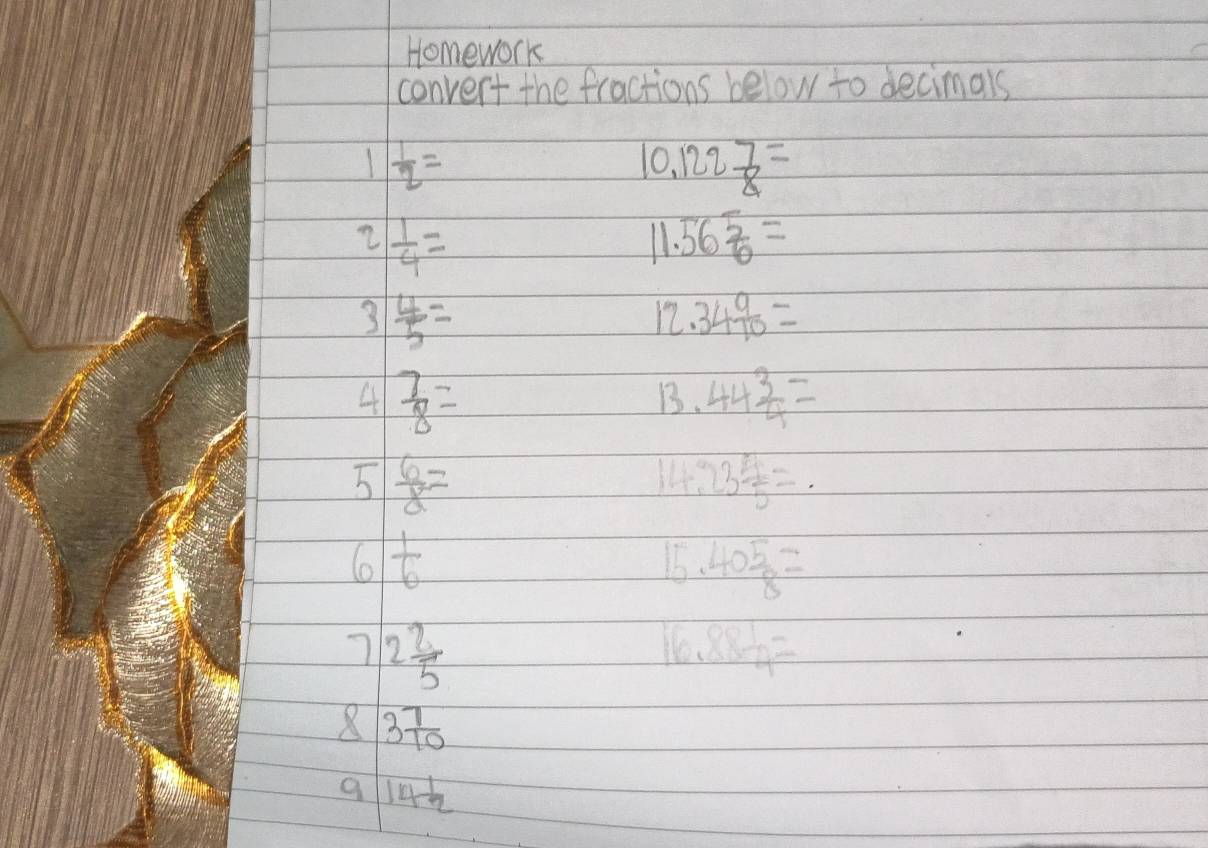 Homework
convert the fractions below to decimals
1 1/2 =
2 1/4 =
3 4/5 =
4 7/8 =
5 6/8 =
6 1/6
7 2 2/5
8 3 7/10
9 14 1/2
10. 122 7/8 =
11. 56 5/6 =
12. 34 9/10 =
13. 44 3/4 =
14. 23 4/5 = .
15. 40 5/8 =
16. 88 1/4 =